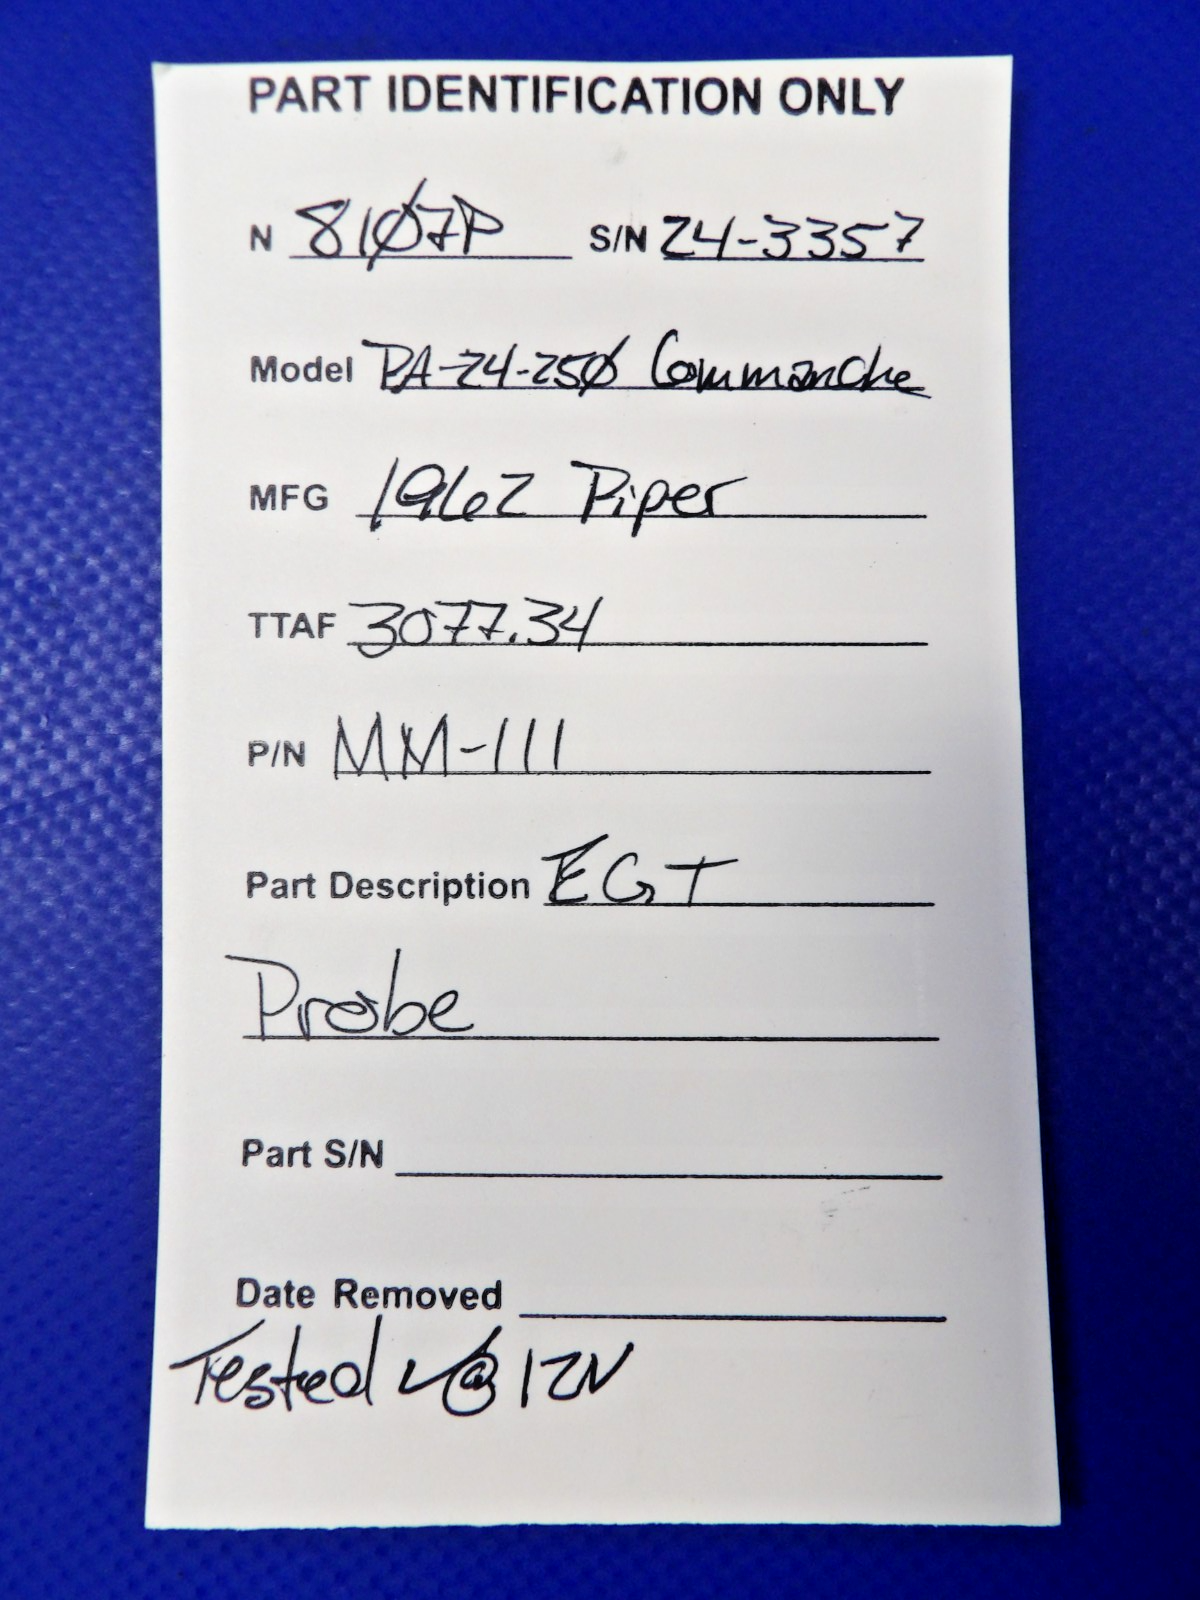 PART IDENTIFICATION ONLY
N 81Ø7P S/N 24-3357
Model PA-24-25Ø Commanche
MFG 1962 Piper
TTAF 3077.34
P/N MM-111
Part Description EGT
Probe
Part S/N
Date Removed
Tested ✓@ 12V